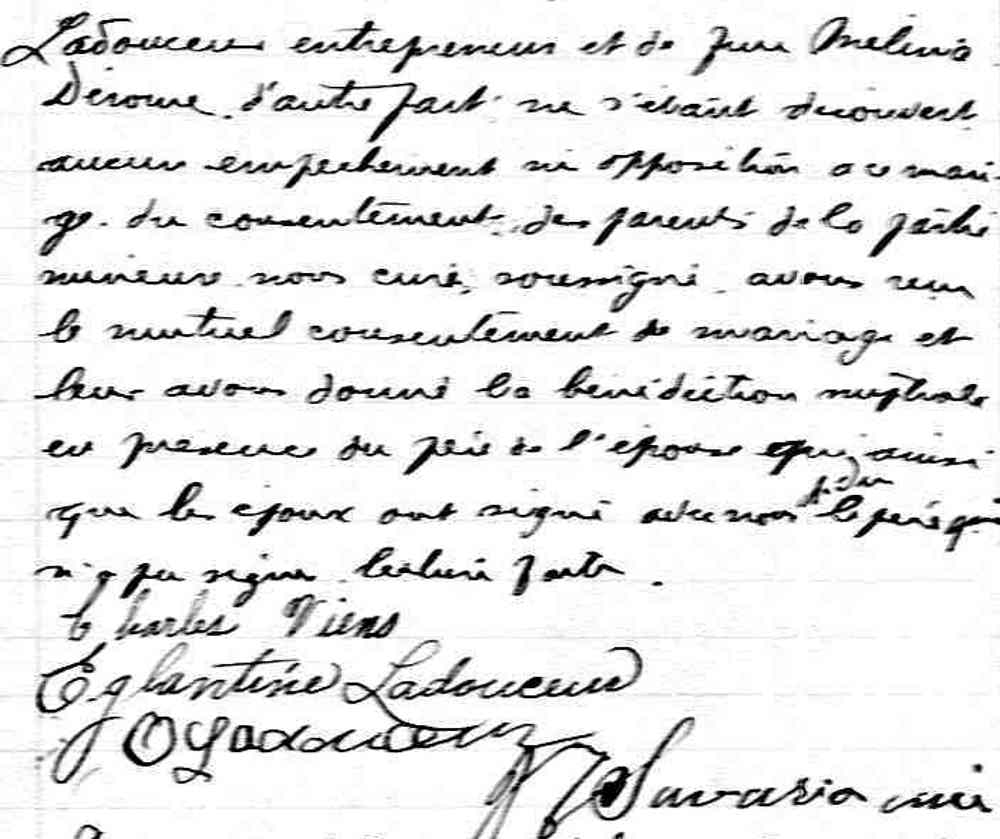 Ladouceur entrepreneur et de feue Melina
Derome d'autre part ne s'étant découvert
aucun empechement ni opposition a ce maria-
ge du consentement des parents de la partie
mineure nous curé soussigné avons reçu
le mutuel consentement de mariage et
leur avons donné la bénédiction nuptiale
en presence du père de l'épouse qui ainsi
que les époux ont signé avec nous le père qui
n'a pu signer lecture faite.
Charles Viens
Eglantine Ladouceur
J O Ladouceur
Savaria curé